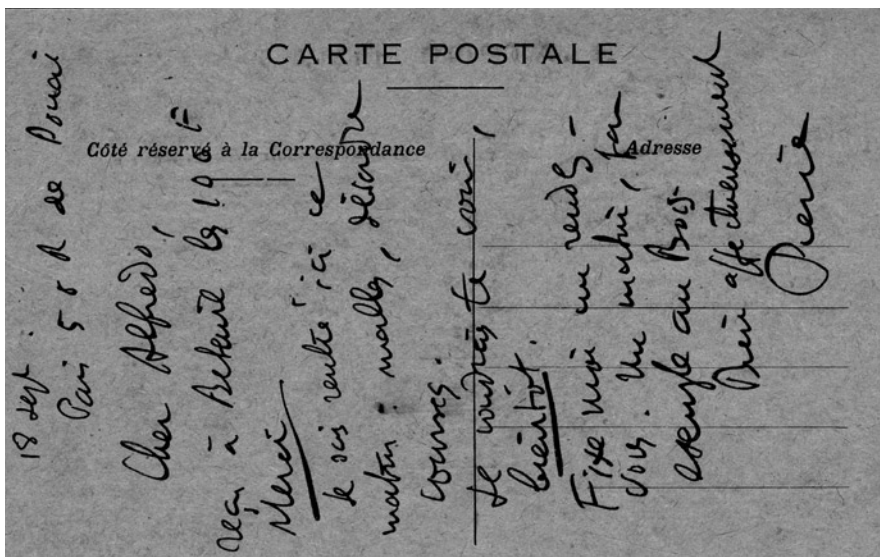 CARTE POSTALE
Côté réservé à la Correspondance
Adresse
18 sept
Paris 58 R de Douai
Cher Alfredo,
reçu à les 100 F
Merci
Je suis rentré ici ce
matin, malles, désordre
courses.
Je voudrais te voir,
bientôt.
Fixe moi un rendez-
vous. Un matin, par
exemple au Bois
Bien affectueusement
Pierre